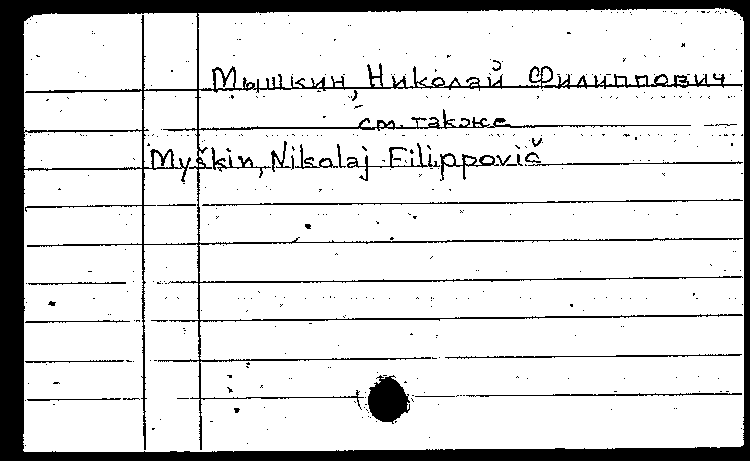 Мышкин, Николай Филиппович
см. также
Myškin, Nikolaj Filippovič